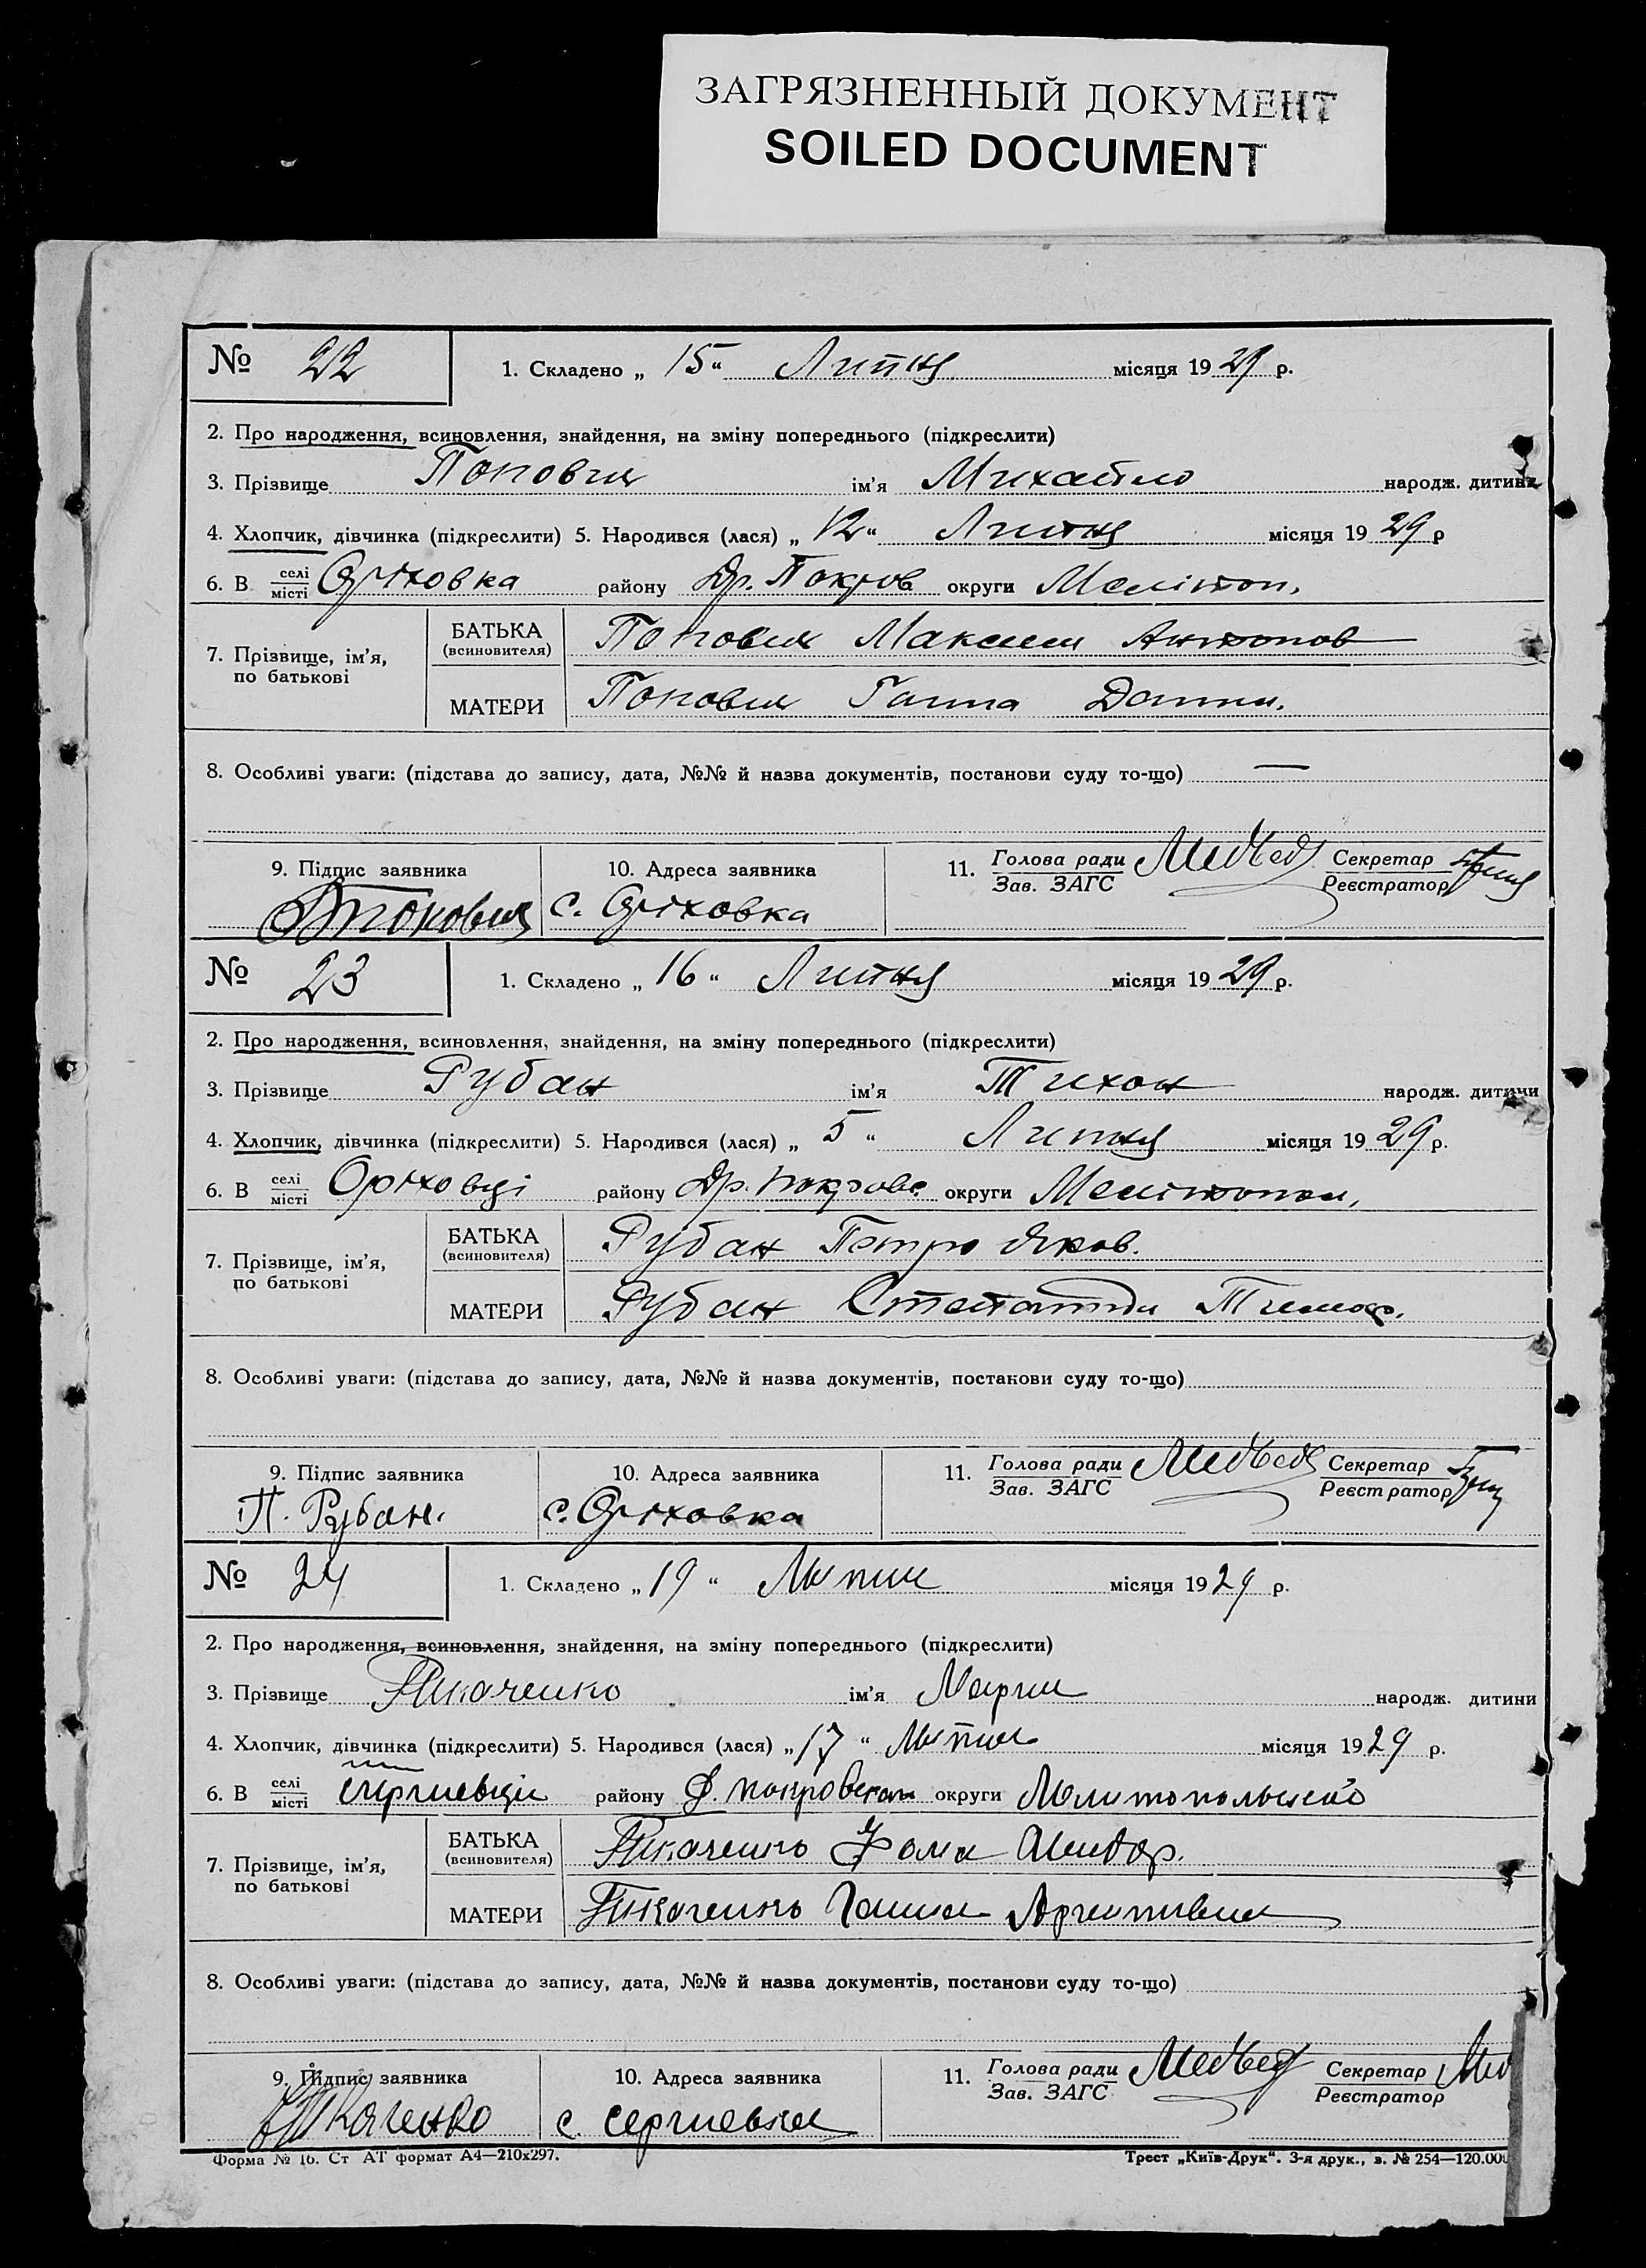 ЗАГРЯЗНЕННЫЙ ДОКУМЕНТ
SOILED DOCUMENT
№ 22 1. Складено „ 15 “ Липня місяця 1929 р.
2. Про народження, всиновлення, знайдення, на зміну попереднього (підкреслити)
3. Прізвище Попович ім'я Михайло народж. дитини
4. Хлопчик, дівчинка (підкреслити) 5. Народився (лася) „ 12 “ Липня місяця 1929 р
6. В селі місті Оріховка району Др. Покров округи Меліточ.
7. Прізвище, ім'я, по батькові
БАТЬКА (всиновителя) Попович Максим Антонов
МАТЕРИ Попович Ганна
8. Особливі уваги: (підстава до запису, дата, №№ й назва документів, постанови суду то-що) —
9. Підпис заявника 10. Адреса заявника 11. Голова ради Зав. ЗАГС Медведь Секретар Реєстратор
Попович с. Оріховка
№ 23 1. Складено „ 16 “ Липня місяця 1929 р.
2. Про народження, всиновлення, знайдення, на зміну попереднього (підкреслити)
3. Прізвище Рубан ім'я Тихон народж. дитини
4. Хлопчик, дівчинка (підкреслити) 5. Народився (лася) „ 5 “ Липня місяця 1929 р.
6. В селі місті Оріховці району Др. покровс. округи Мелітопол.
7. Прізвище, ім'я, по батькові
БАТЬКА (всиновителя) Рубан Петро Яков.
МАТЕРИ Рубан Тимоф.
8. Особливі уваги: (підстава до запису, дата, №№ й назва документів, постанови суду то-що)
9. Підпис заявника 10. Адреса заявника 11. Голова ради Зав. ЗАГС Медведь Секретар Реєстратор
П. Рубан. с. Оріховка
№ 24 1. Складено „ 19 “ Липня місяця 1929 р.
2. Про народження, всиновлення, знайдення, на зміну попереднього (підкреслити)
3. Прізвище Ткаченко ім'я Мария народж. дитини
4. Хлопчик, дівчинка (підкреслити) 5. Народився (лася) „ 17 “ Липня місяця 1929 р.
6. В селі місті Сергиевци району Д. покровском округи Мелитопольскво
7. Прізвище, ім'я, по батькові
БАТЬКА (всиновителя) Ткаченко Фома
МАТЕРИ Ткаченко Ганна
8. Особливі уваги: (підстава до запису, дата, №№ й назва документів, постанови суду то-що)
9. Підпис заявника 10. Адреса заявника 11. Голова ради Зав. ЗАГС Медведь Секретар Реєстратор
Ткаченко с. Сергиевка
Форма № 16. Ст АТ формат А4—210х297. Трест „Київ-Друк“. 3-я друк., з. № 254—120.000